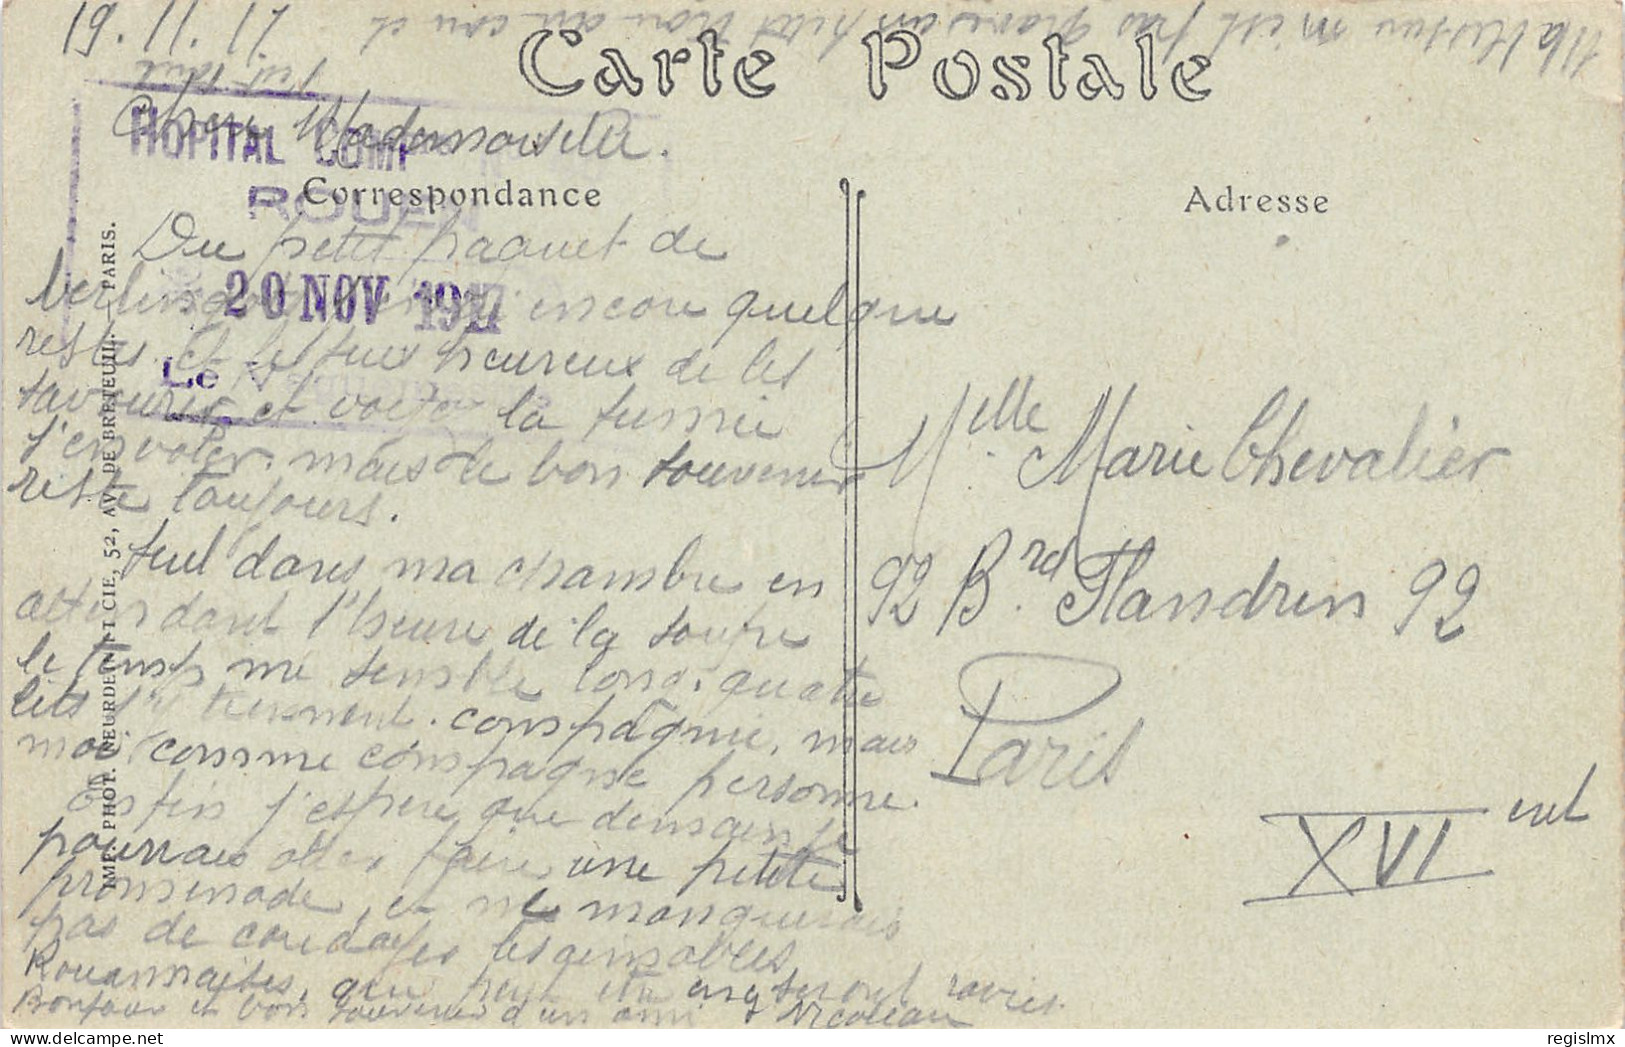 19.11.17
Carte Postale
Chère Mademoiselle.
HOPITAL COMP
ROUEN
20 NOV 1917
Le
Correspondance
Adresse
Du petit paquet de
berlingots encore quelque
restes. et je suis heureux de les
savourer et voir la fumée
s'envoler, mais le bon souvenir
reste toujours.
seul dans ma chambre en
attendant l'heure de la soupe
le temps me semble long, quatre
lits s'y tiennent compagnie, mais
moi comme compagne personne.
Enfin j'espère que demain je
pourrais aller faire une petite
promenade, et ne manquerais
pas de les aimables
Rouannaises, qui seront ravies.
Bonjour et bon souvenir d'un ami
Melle Marie Chevalier
92 Brd Flandrin 92
Paris
XVI
IMP. PHOT. NEURDEIN ET CIE, 52, AV. DE BRETEUIL. — PARIS.
m'est pas grave au cou et
regislmx